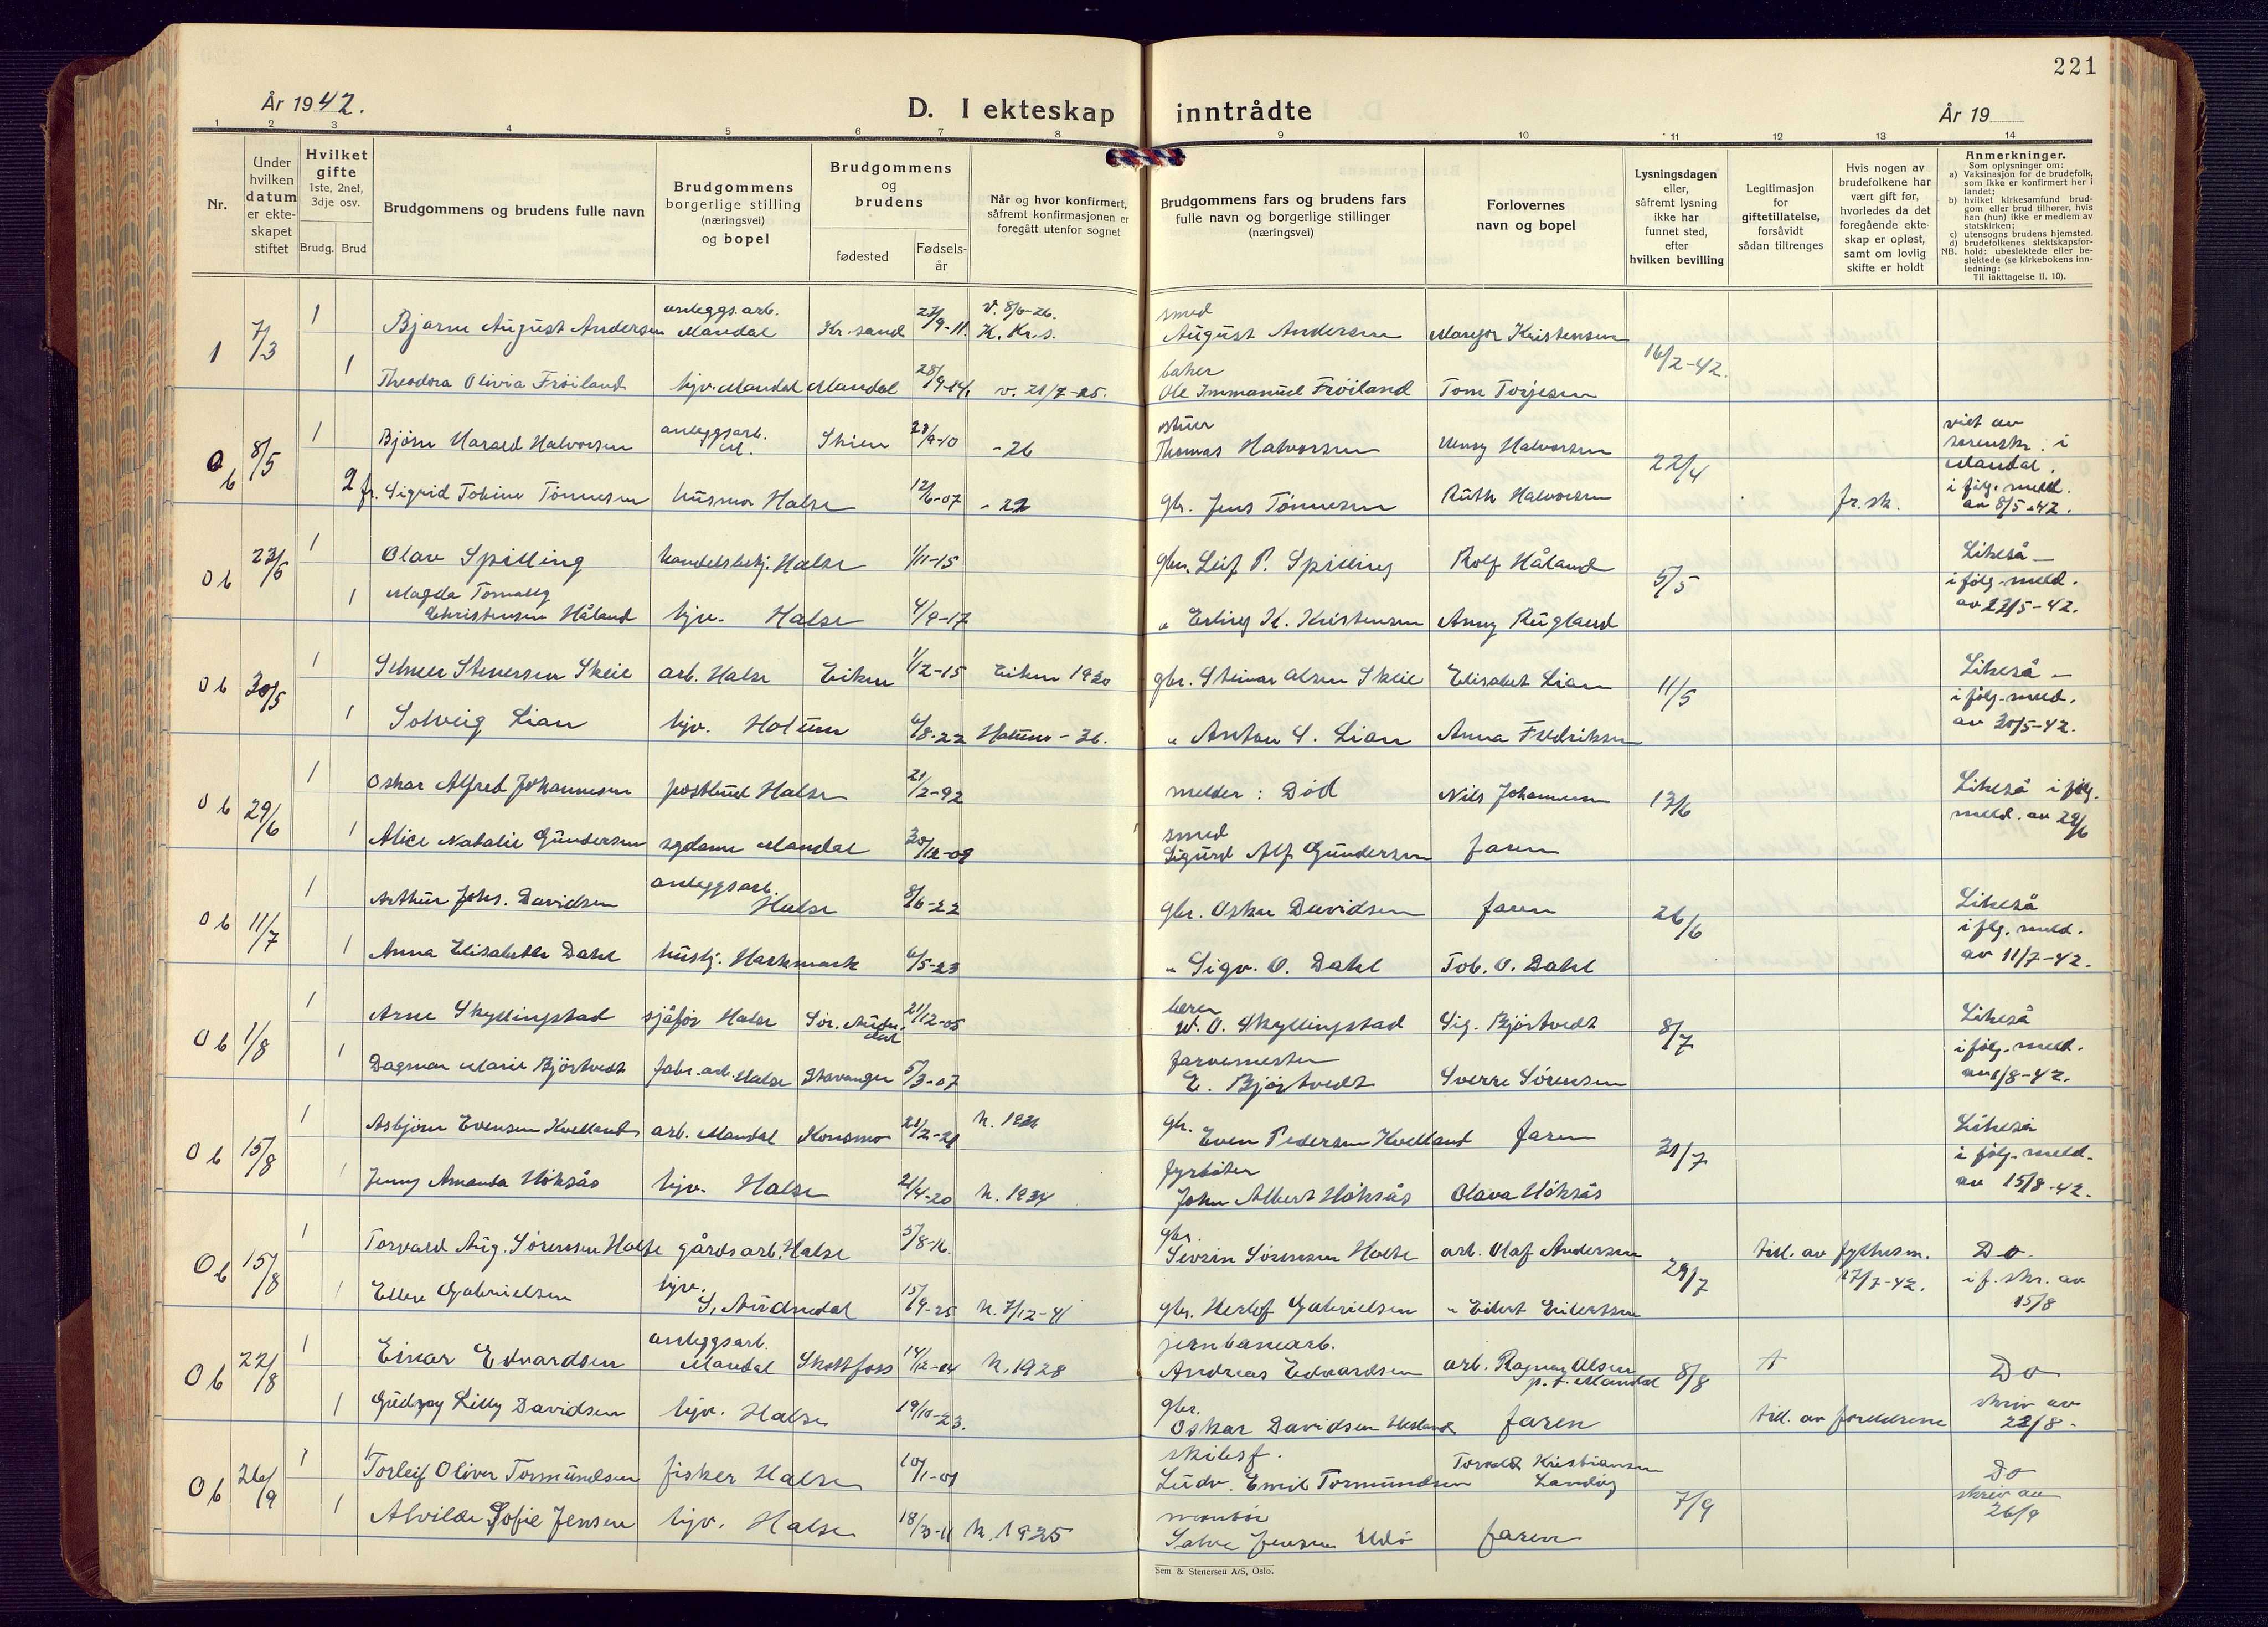 221
År 1942.
D. I ekteskap inntrådte
År 19
1 2 3 4 5 6 7 8 9 10 11 12 13 14
Nr.
Under hvilken datum er ekteskapet stiftet
Hvilket gifte
1ste, 2net, 3dje osv.
Brudg. Brud
Brudgommens og brudens fulle navn
Brudgommens borgerlige stilling (næringsvei) og bopel
Brudgommens og brudens
fødested
Fødsels-år
Når og hvor konfirmert, såfremt konfirmasjonen er foregått utenfor sognet
Brudgommens fars og brudens fars fulle navn og borgerlige stillinger (næringsvei)
Forlovernes navn og bopel
Lysningsdagen eller, såfremt lysning ikke har funnet sted, efter hvilken bevilling
Legitimasjon for giftetillatelse, forsåvidt sådan tiltrenges
Hvis nogen av brudefolkene har vært gift før, hvorledes da det foregående ekteskap er opløst, samt om lovlig skifte er holdt
Anmerkninger.
Som oplysninger om:
a) Vaksinasjon for de brudefolk, som ikke er konfirmert her i landet;
b) hvilket kirkesamfund brudgom eller brud tilhører, hvis han (hun) ikke er medlem av statskirken;
c) utensogns brudens hjemsted.
d) brudefolkenes slektskapsforhold: ubeslektede eller beslektede (se kirkebokens innledning:
NB.
Til iakttagelse II. 10).
1 7/3 1 Bjarne August Andersen anleggs.arb. Mandal Kr.sand 27/9-11. v. 8/6-26. K. Kr.s. smed August Andersen Kristensen 16/2-42.
1 Theodora Olivia Fröiland hjv. Mandal Mandal 28/9-14 v. 21/7-25. baker Ole Immanuel Fröiland Tom Torjesen
0 b 8/5 1 Bjørn Harald Halvorsen anleggsarb. Skien 28/9-10 -26 Thomas Halvorsen Henry Halvorsen 22/4 viet av sorenskr. i Mandal.
2 fr. Sigrid Tobine Tönnesen husmor Halse 12/6-07 - 22 gbr. Jens Tönnesen Ruth Halvorsen fr. sk. i følg. meld. av 8/5-42.
0 b 23/5 1 Olav Spilling handelsbetj. Halse 1/11-15 gbr. Leif P. Spilling Rolf Håland 5/5 Likeså —
1 Magda Christensen Håland hjv. Halse 4/9-17 " Erling K. Kristensen Anny Rugland i følg. meld. av 22/5-42.
0 b 30/5 1 Stenersen Skeie arb. Halse Eiken 1/12-15 Eiken 1930 gbr. Steinar Olsen Skeie Elisabet Lian 11/5 Likeså —
1 Solveig Lian hjv. Holum 6/8-22 Holum - 36. " Anton S. Lian Anna Fredriksen i følg. meld. av 30/5-42.
0 b 29/6 1 Oskar Alfred Johannesen postbud Halse 21/2-92 melder: Död Nils Johannesen 13/6 Likeså i følg.
1 Alice Natalie Gundersen sydame Mandal 30/12-09 smed Sigurd Alf Gundersen faren meld. av 29/6
0 b 11/7 1 Arthur Johs. Davidsen anleggsarb. Halse 8/6-22 gbr. Oskar Davidsen faren 26/6 Likeså
1 Anna Elisabeth Dahl hushj. Harkmark 6/5-23 " Sigv. O. Dahl Tob. O. Dahl i flg. meld. av 11/7-42.
0 b 1/8 1 Arne Skyllingstad sjåfør Halse Sör. Audnedal 21/12-05 lærer W. O. Skyllingstad Sig. Björtvedt 8/7 Likeså
1 Dagmar Marie Björtvedt fabr.arb. Halse Stavanger 5/3-07 farvemester E. Björtvedt Sverre Sörensen i følg. meld. av 1/8-42.
0 b 15/8 1 Asbjørn Evensen Kvelland arb. Mandal Konsmo 28/2-21 gbr. Even Pedersen Kvelland faren 31/7 Likeså
1 Jenny Amanda Höksås hjv. Halse 21/4-20 k. 1934 fyrböter John Albert Höksås Olava Höksås i følg. meld. av 15/8-42.
0 b 15/8 1 Torvald Aug. Sörensen Holte gårdsarb. Halse 5/8-16 gbr. Severin Sörensen Holte arb. Olaf Andersen 29/7 till. av fylkesm. Do.
1 Ellen Gabrielsen hjv. S. Audnedal 15/9-25 k. 7/12-41 gbr. Herlof Gabrielsen " Eilert Eilertsen 17/7-42. i f. skr. av 15/8
0 b 22/8 1 Einar Edvardsen anleggsarb. Mandal Skotfoss 14/12-14 k. 1928 jernbanearb. Andreas Edvardsen arb. Ragnar Olsen p.t. Mandal 8/8 Do
1 Gudny Lilly Davidsen hjv. Halse 19/10-23. gbr. Oskar Davidsen faren till. av foreldrene skriv av 22/8-
0 b 26/9 1 Torleif Oliver Tormundsen fisker Halse 10/1-09 skibsf. Ludv. Emil Tormundsen Torvald Kristiansen Landøy 7/9 Do
1 Alvilde Sofie Jensen hjv. Halse 18/3-11 k. 1925 montör Salve Jensen Udö faren skriv av 26/9
Sem & Stenersen A/S, Oslo.